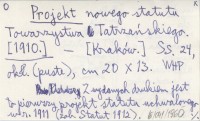 O
K
Projekt nowego statutu
Towarzystwa Tatrzańskiego.
[1910.] — [Kraków.] Ss. 24,
obl. (puste), cm 20 X 13. WHP
Pierwszy z wydanych drukiem jest
to pierwszy projekt statutu uchwalonego
w r. 1911 (zob. Statut 1912).